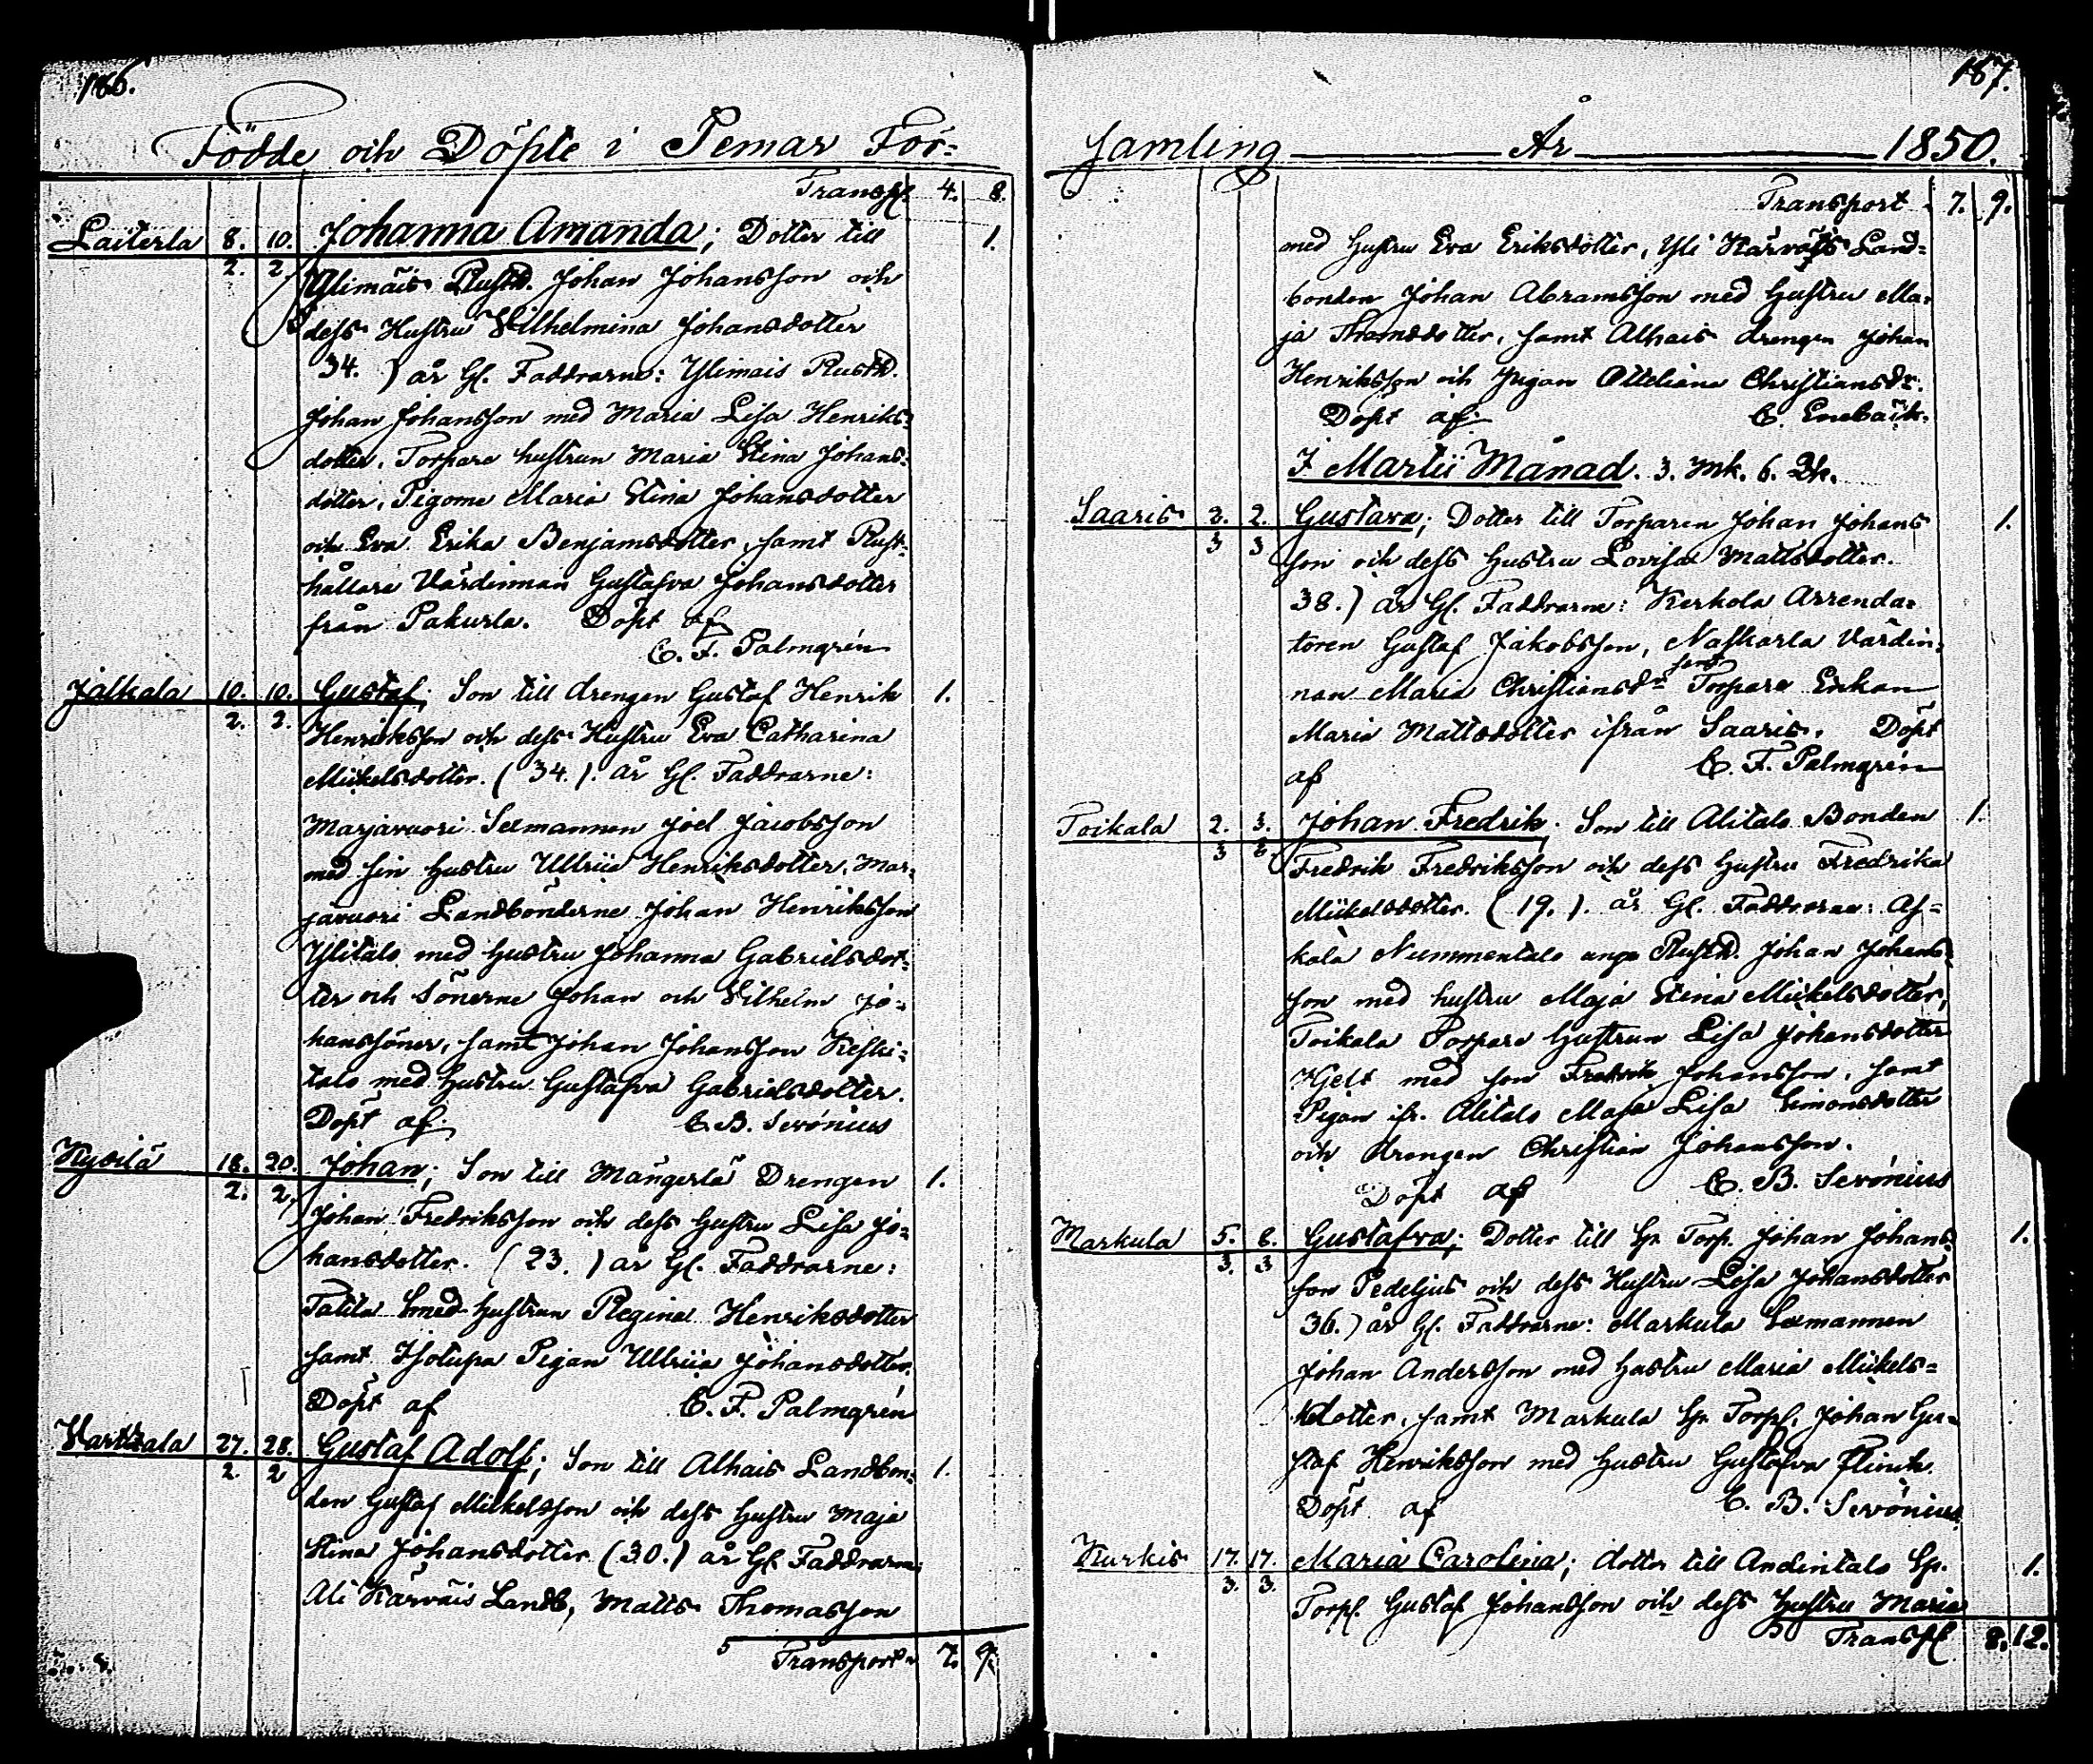 186.
Födde och Döpte i Pemar För=
Transp. 4. 8.
Laiterla 8. 10. Johanna Amanda; Dotter till 1.
2. 2. Ylimäis Rusth. Johan Johansson och
dess Hustru Wilhelmina Johansdotter
34. ) år Gl. Faddrarne: Ylimais Rusth.
Johan Johansson med Maria Lisa Henriks=
dotter, Torpare hustrun Maria Stina Johans=
dotter, Pigorne Maria Stina Johansdotter
och Eva Erika Benjamsdotter, samt Rust=
hållare Värdinnan Gustafva Johansdotter
från Pakurla. Döpt af
C. F. Palmgrén
Jalkala 10. 10. Gustaf; Son till drengen Gustaf Henrik 1.
2. 2. Henriksson och dess Hustru Eva Catharina
Mickelsdotter. ( 34. ). år Gl. Faddrarne:
Marjavuori Sexmannen Joel Jacobsson
med sin hustru Ulrica Henriksdotter, Mar=
javuori Landbönderne Johan Henriksson
Ylitalo med hustru Johanna Gabrielsdot=
ter och Sönerne Johan och Wilhelm Jo=
hanssöner, samt Johan Johansson Keski=
talo med hustru Gustafva Gabrielsdotter.
Döpt af C. B. Serónius
18. 20. Johan; Son till Mängerlä Drengen 1.
2. 2. Johan Fredriksson och dess hustru Lisa Jo=
hansdotter. ( 23. ) år Gl. Faddrarne:
Smed hustrun Regina Henriksdotter
samt Isotupa Pigan Ulrica Johansdotter.
Döpt af C. F. Palmgrén
27. 28. Gustaf Adolf; Son till Alhais Landbon= 1.
2. 2 den Gustaf Mickelsson och dess hustru Maja
Stina Johansdotter (30.) år Gl. Faddrarne:
Ali Kärväis Landb, Matts Thomasson
5 Transport 7. 9.
187.
samling År 1850.
Transport 7. 9.
med hustru Eva Eriksdotter, Yli Kärväis Land=
bonden Johan Abramsson med hustru Ma=
ja Thomsdotter, samt Alhais drengen Johan
Henriksson och Pigan Otteliana Christiansdr.
Döpt af C. Enebäck.
I Martii Månad. 3. Mk. 6. Qk.
Saaris 2. 2. Gustava; Dotter till Torparen Johan Johans 1.
3 3 son och dess hustru Lovisa Mattsdotter.
38. ) år Gl. Faddrarne: Kerkola Arrenda=
toren Gustaf Jakobsson, Naskarla Värdin=
nan Maria Christiansdr samt Torpare Enkan
Maria Mattsdotter ifrån Saaris. Döpt
af C. F. Palmgrén
Toikala 2. 3. Johan Fredrik. Son till Alitalo Bonden 1.
3 3. Fredrik Fredriksson och dess hustru Fredrika
Mickelsdotter. ( 19. ). år Gl. Faddrarne: As=
kala Nummentalo unga Rusth. Johan Johans=
son med hustru Maja Stina Mickelsdotter,
Toikala Torpare hustrun Lisa Johansdotter
Hjelt med son Fredrik Johansson, samt
Pigan ifr. Alitalo Maja Lisa Simonsdotter
och drengen Christian Johansson.
Döpt af C. B. Serónius
Markula 5. 6. Gustafva; Dotter till Sp. Torp. Johan Johans= 1.
3. 3 son Pedeljus och dess Hustru Lisa Johansdotter
36. ) år Gl. Faddrarne: Markula Sexmannen
Johan Andersson med hustru Maria Mickels=
dotter, samt Markula Sp. Torp. Johan Gu=
staf Henriksson med hustru Gustafva Flinck.
Döpt af C. B. Serónius
Kurkis 17. 17. Maria Carolina; dotter till Andintalo Sp. 1.
3. 3. Torp. Gustaf Johansson och dess hustru Maria
Transp 8. 12.